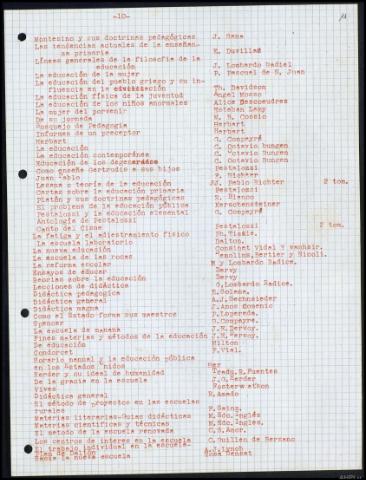 -10-
Montesino y sus doctrinas pedagógicas J. Sama
Las tendencias actuales de la enseñanza primaria E. Duvillaz
Líneas generales de la filosofía de la educación J. Lombardo Radiel
La educación de la mujer P. Pascual de S. Juan
La educación del pueblo griego y su influencia en la civilización Th. Davidson
La educación física de la juventud Angel Mosso
La educación de los niños anormales Alice Descoeudres
La mujer del porvenir Esteban Lamy
De su jornada M. B. Cossio
Bosquejo de Pedagogía Herbart
Informes de un preceptor Herbart
Herbart G. Compayré
La educación C. Octavio Bungen
La educación contemporánea C. Octavio Bungen
Educación de los degenerados C. Octavio Bungen
Como enseña Gertrudis a sus hijos Pestalozzi
Juan Pablo F. Richter
Levana o teoría de la educación JJ. Pablo Richter 2 tom.
Cartas sobre la educación primaria Pestalozzi
Platón y sus doctrinas pedagógicas R. Blanco
El problema de la educación pública Kerschensteiner
Pestalozzi y la educación elemental G. Compayré
Antología de Pestalozzi
Canto del Cisne Pestalozzi 2 tom.
La fatiga y el adiestramiento físico Ph. Tissie.
La escuela laboratorio Dalton.
La nueva educación
La escuela de las rocas
La reforma escolar M y Lombardo Radice.
Ensayos de educar Dervy
Teorías sobre la educación Dervy
Lecciones de didáctica G. Lombardo Radice.
Didáctica pedagógica E. Solana.
Didáctica general A.J.
Didáctica magna J. Amos Comenio
Como el Estado forma sus maestros F. Lopereda.
Spencer G. Compayre.
La escuela de mañana J.H. Dervoy.
Fines materias y métodos de la educación J.H. Dervoy.
De educación Milton
Condorcet F. Vial.
Horario manual y la educación pública en los Estados Unidos
Herder y su ideal de humanidad
De la gracia en la escuela J.G. Herder
Vives
Didáctica general R. Amado
El método de proyectos en las escuelas rurales F. Sainz.
Materias literarias-Guías didácticas M. Sdo. Inglés
Materias científicas y técnicas M. Sdo. Ingles.
El método de la escuela renovada
Los centros de interés en la escuela C. Guillen de Rezzano
El trabajo individual en la escuela-Plan de Dalton A.J. Lynch
Hacia la nueva escuela Rosa Sensat